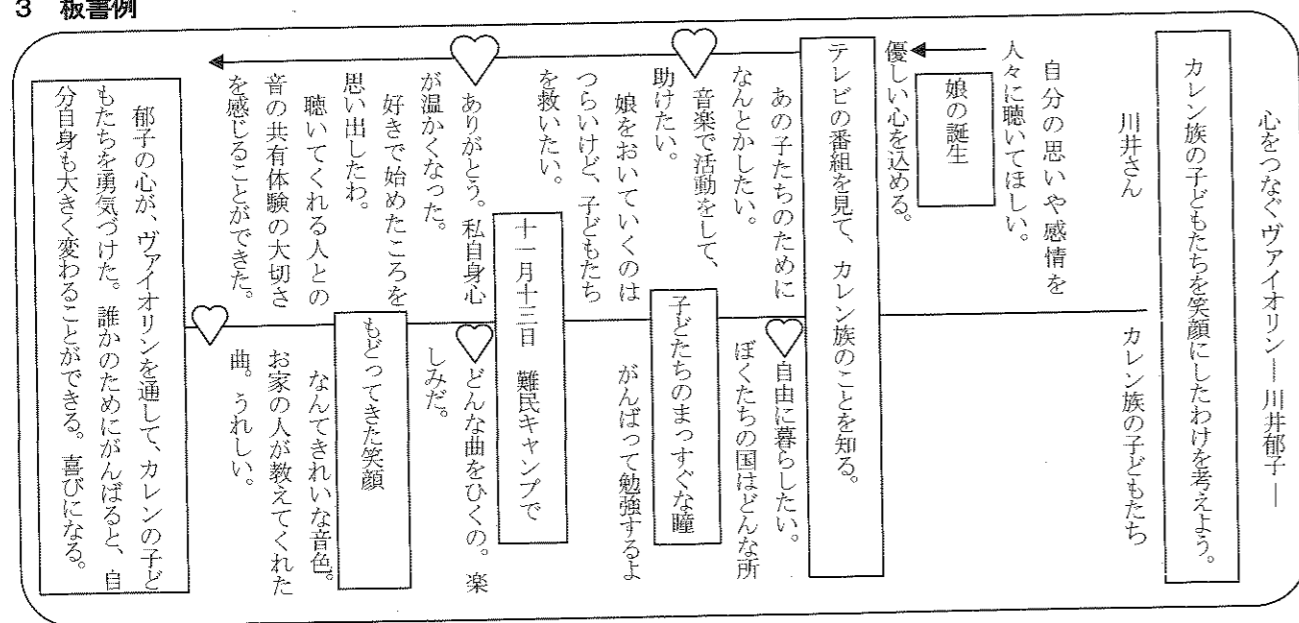 3　板書例
心をつなぐヴァイオリン― 川井郁子 ―
カレン族の子どもたちを笑顔にしたわけを考えよう。
川井さん
カレン族の子どもたち
自分の思いや感情を
人々に聴いてほしい。
娘の誕生
優しい心を込める。
テレビの番組を見て、カレン族のことを知る。
あの子たちのために
なんとかしたい。
音楽で活動をして、
助けたい。
娘をおいていくのは
つらいけど、子どもたち
を救いたい。
自由に暮らしたい。
ぼくたちの国はどんな所
子どたちのまっすぐな瞳
がんばって勉強するよ
十一月十三日　難民キャンプで
ありがとう。私自身心
が温かくなった。
好きで始めたころを
思い出したわ。
聴いてくれる人との
音の共有体験の大切さ
を感じることができた。
どんな曲をひくの。楽
しみだ。
もどってきた笑顔
なんてきれいな音色。
お家の人が教えてくれた
曲。うれしい。
郁子の心が、ヴァイオリンを通して、カレンの子ど
もたちを勇気づけた。誰かのためにがんばると、自
分自身も大きく変わることができる。喜びになる。